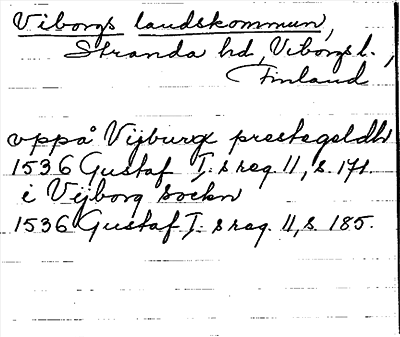 Viborgs landskommun,
Stranda hd, Viborgs l.,
Finland
uppå Vijburgx prestegeldh
1536 Gustaf I:s reg. 11, s. 171.
i Vijborg sockn
1536 Gustaf I:s reg. 11, s. 185.